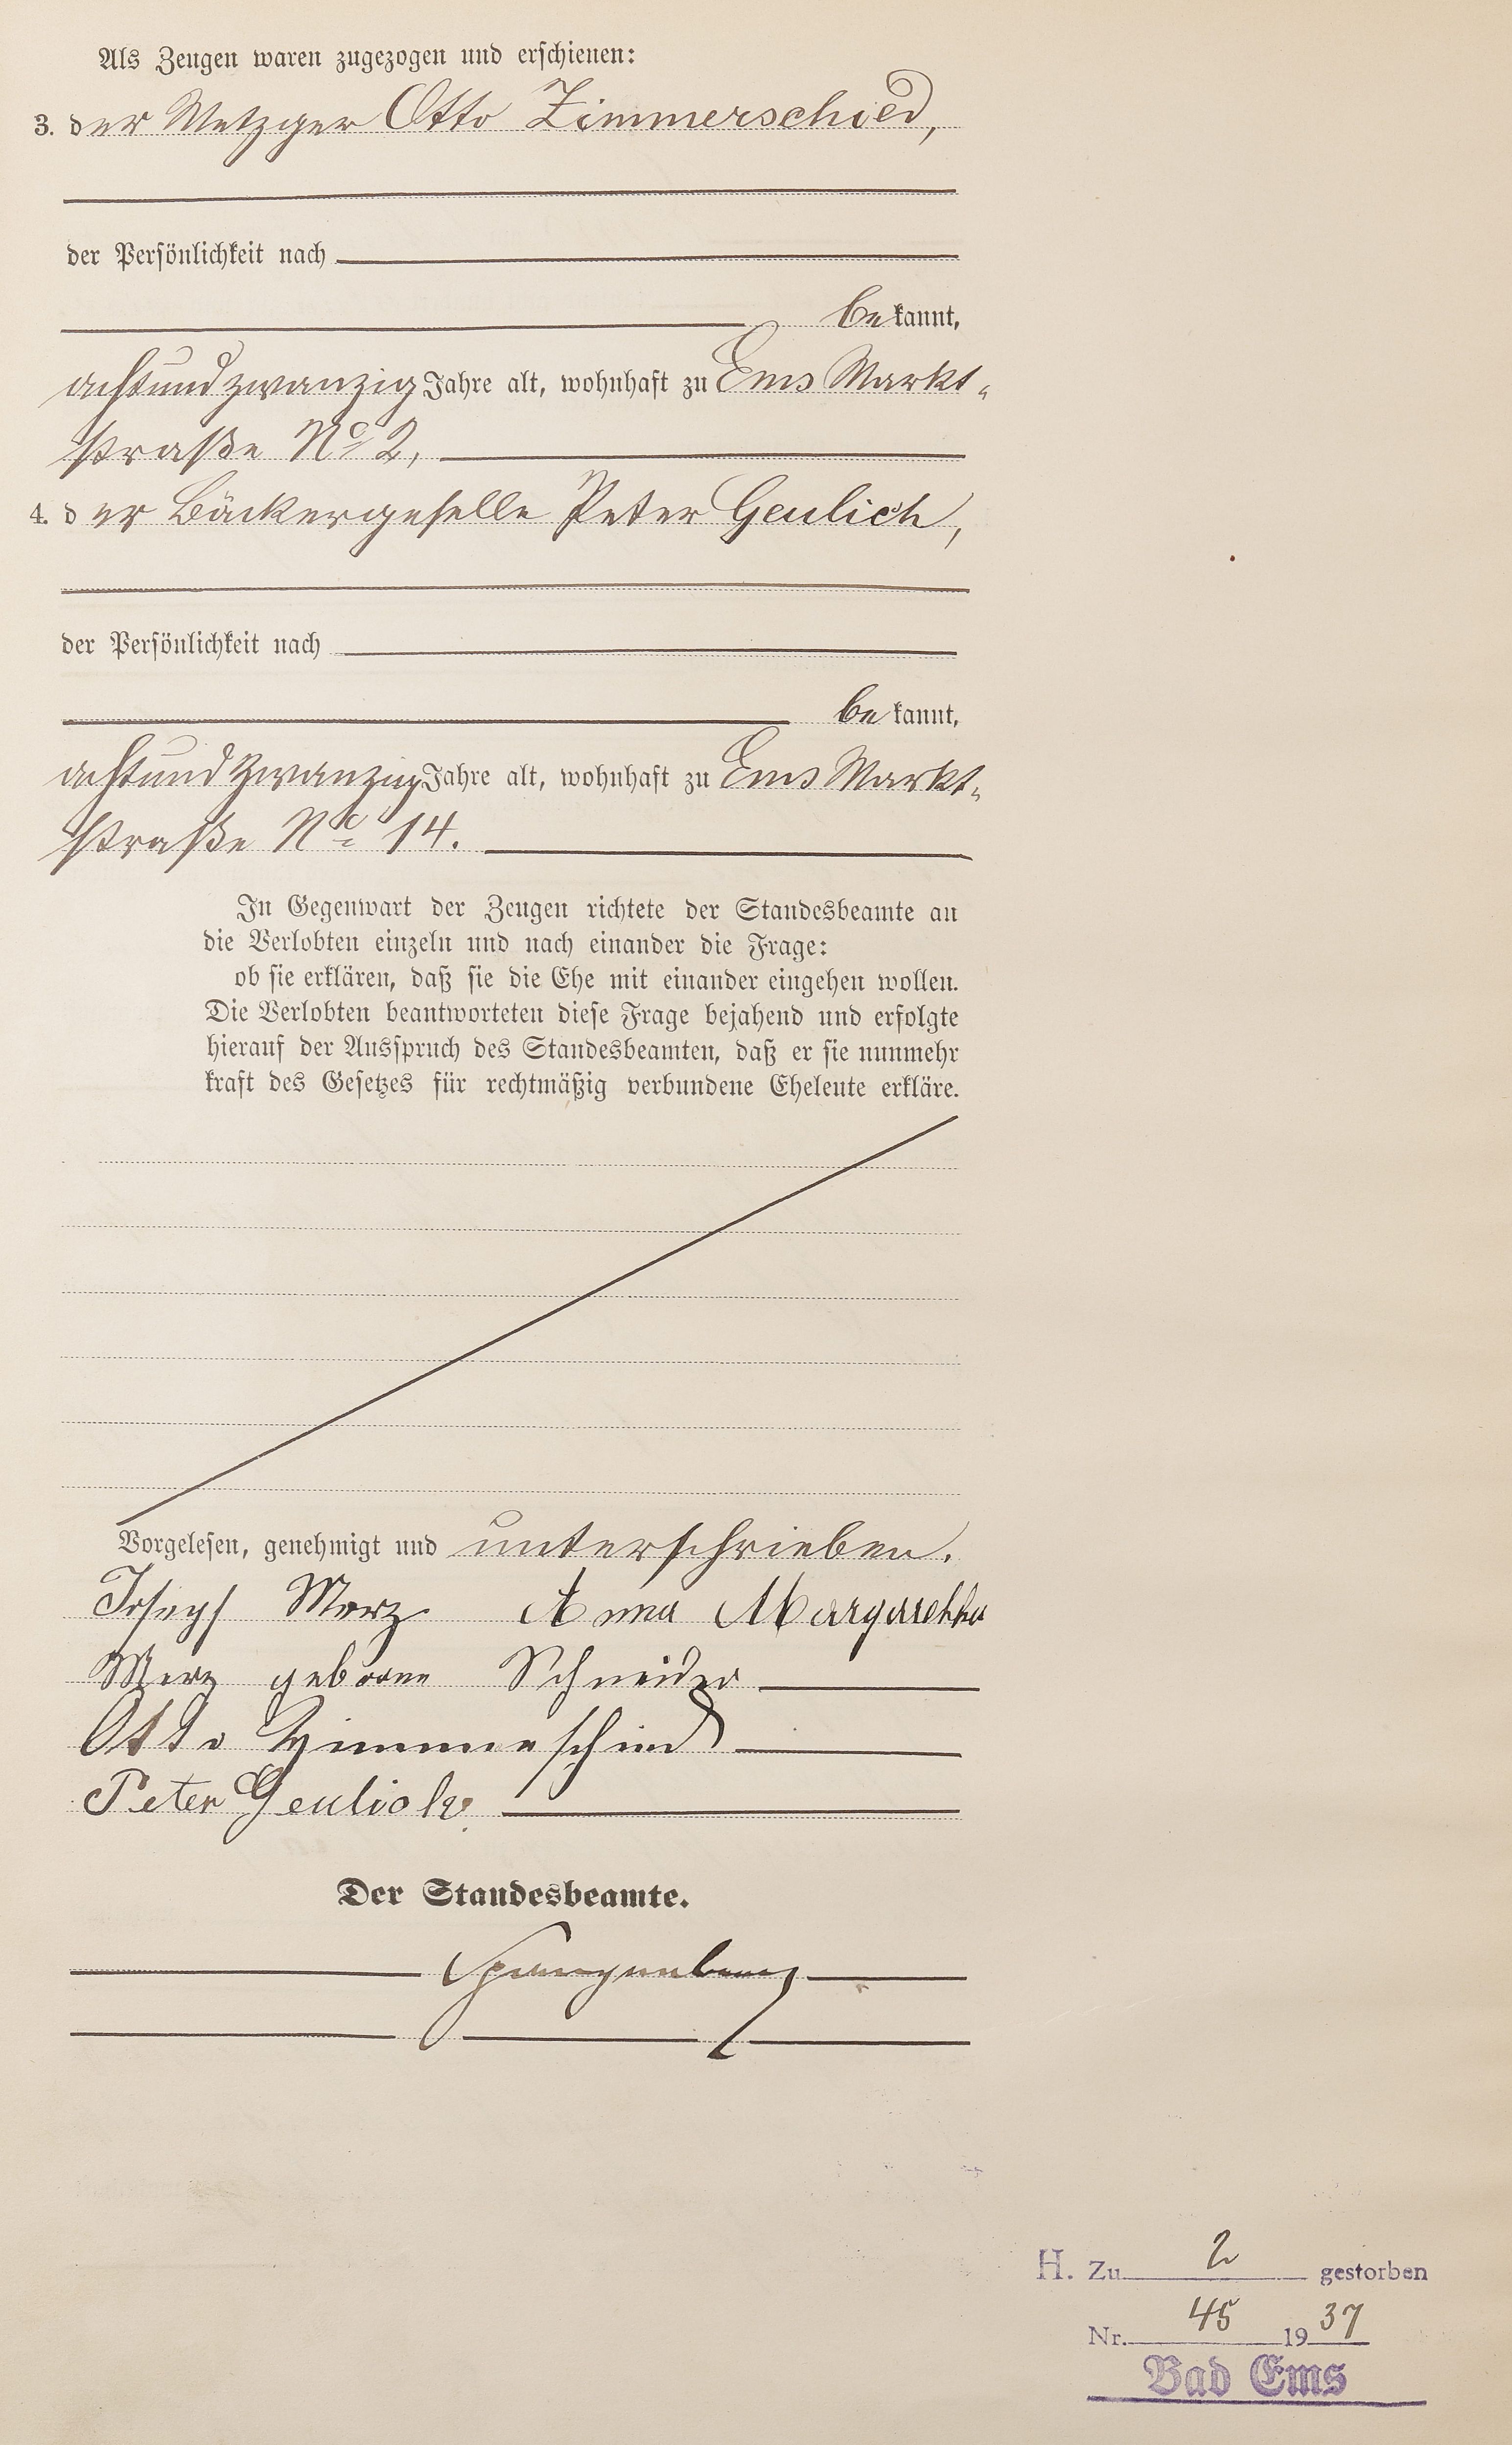 Als Zeugen waren zugezogen und erschienen:
3. der Metzger Otto Zimmerschied,
der Persönlichkeit nach
bekannt,
achtundzwanzig Jahre alt, wohnhaft zu Ems Markt-
straße No 2,
4. der Bäckergeselle Peter Geulich,
der Persönlichkeit nach
bekannt,
achtundzwanzig Jahre alt, wohnhaft zu Ems Markt-
straße No 14.
In Gegenwart der Zeugen richtete der Standesbeamte an
die Verlobten einzeln und nach einander die Frage:
ob sie erklären, daß sie die Ehe mit einander eingehen wollen.
Die Verlobten beantworteten diese Frage bejahend und erfolgte
hierauf der Ausspruch des Standesbeamten, daß er sie nunmehr
kraft des Gesetzes für rechtmäßig verbundene Eheleute erkläre.
Vorgelesen, genehmigt und unterschrieben.
Joseph Merz Anna Margaretha
Merz geborne Schneider
Otto Zimmerschied
Peter Geulich
Der Standesbeamte.
Spangenberg
H. Zu 2 gestorben
Nr. 45 1937
Bad Ems